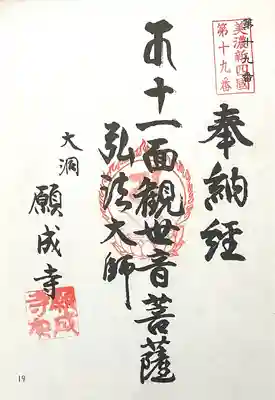 第十九番
美濃新四國
第十九番
奉納経
十一面観世音菩薩
弘法大師
大洞
願成寺
19